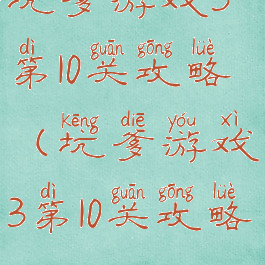 坑爹游戏3
dì guān gōng luè
第10关攻略
kēng diē yóu xì
(坑爹游戏
dì guān gōng luè
3第10关攻略